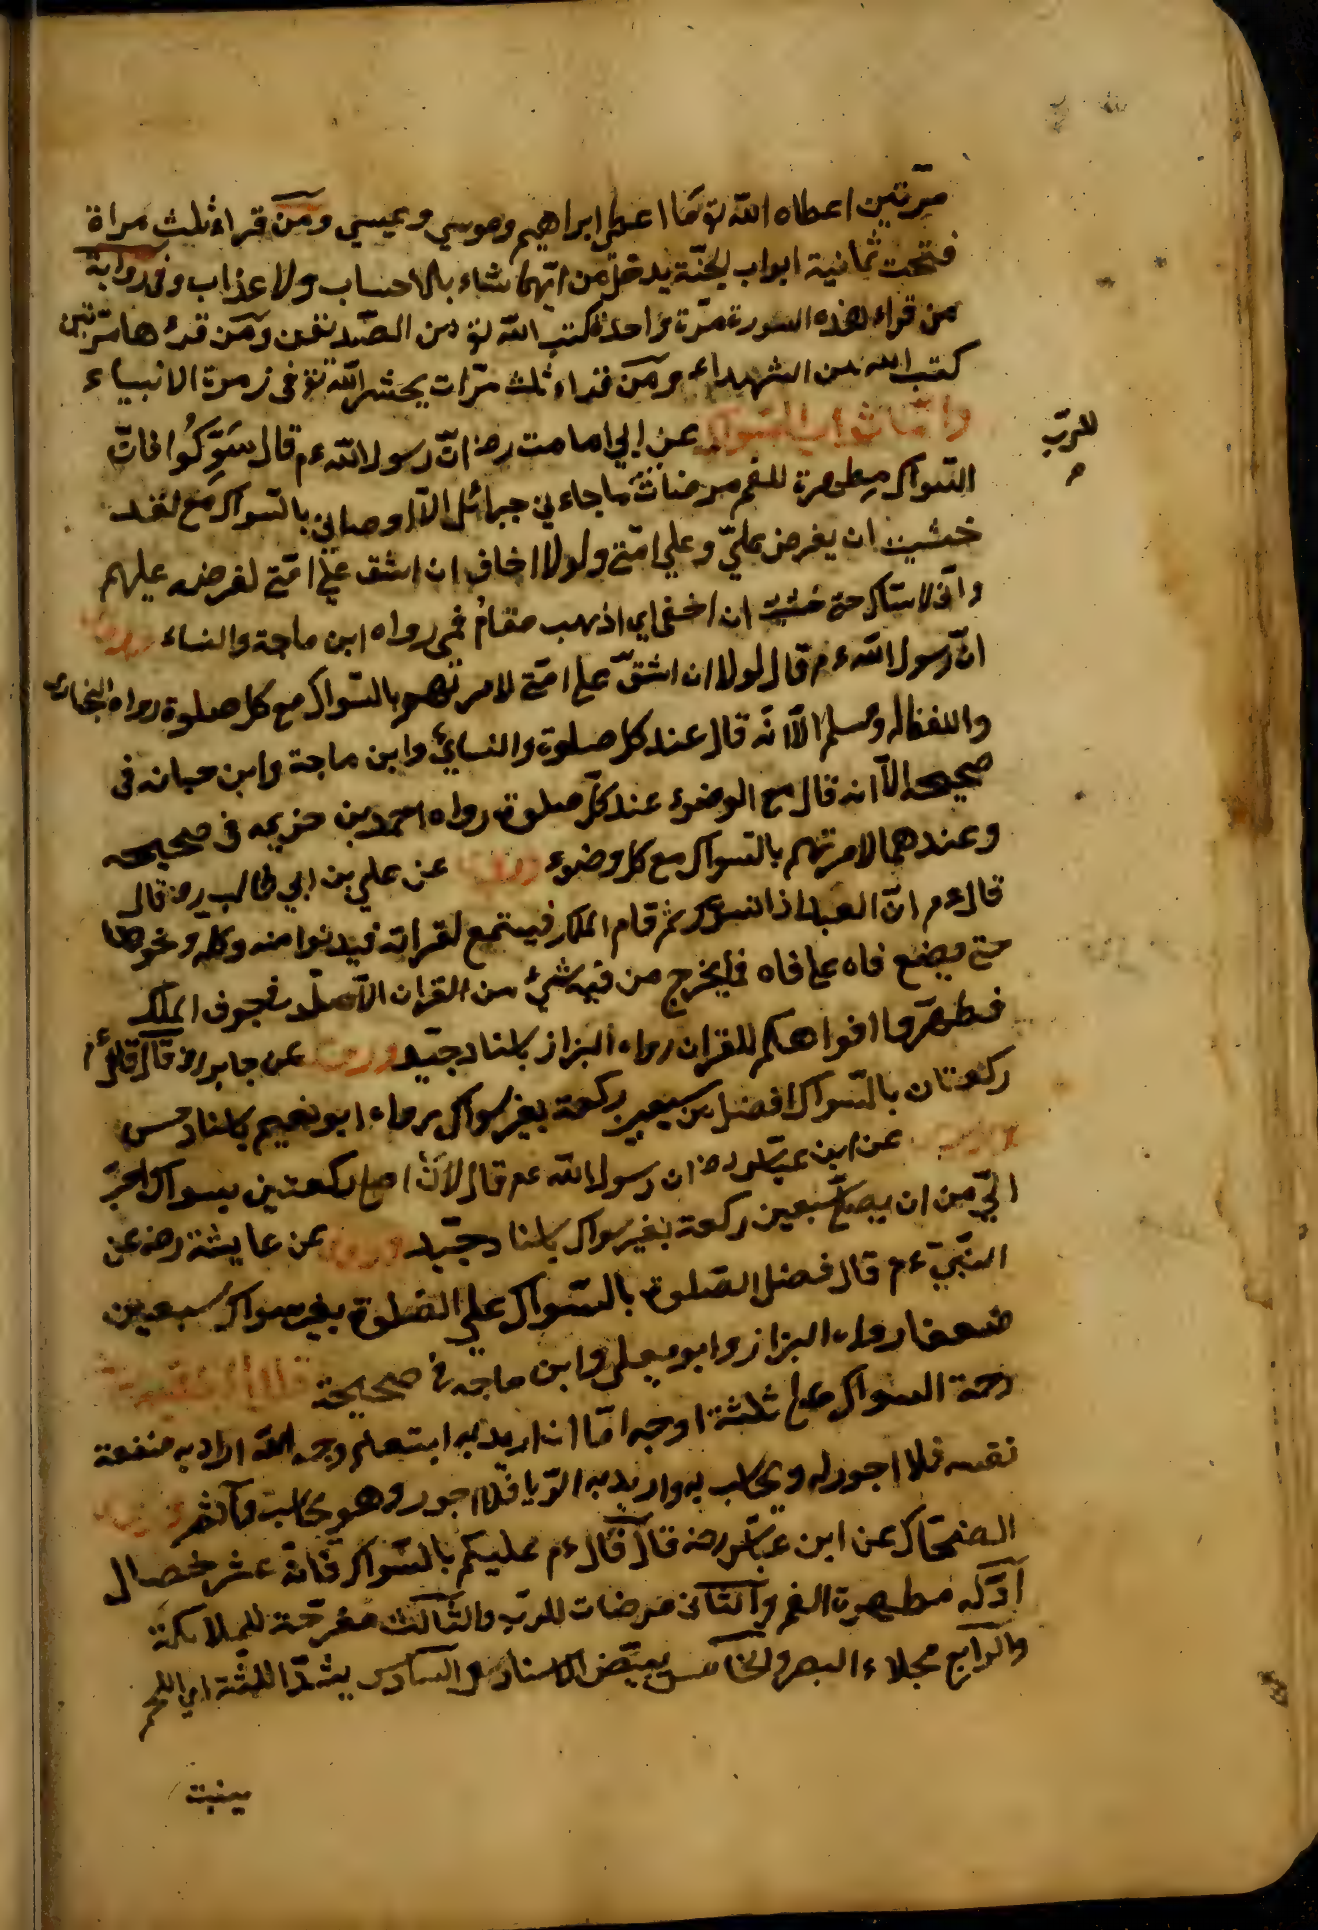 مرّتين اعطاه الله تو ما اعطى ابراهيم وموسى وعيسى ومن قراء ثلث مراة
فتحت ثمانية ابواب الجنّة يدخل من ايّها شاء بلا حساب ولا عذاب وفى رواية
من قراء هذه السورة مرّة واحدة كتب الله تو من الصّديقين ومن قرءها مرّتين
كتب الله من الشهداء ومن قراء ثلث مرّات يحشر الله تو فى زمرة الانبياء
وامّا ثواب السّواك عن ابي امامت رضه انّ رسول الله ءم قال سَوِّكُوا فانّ
للرّب
السّواك مطهرة للفم مرضاتٌ ما جاءني جبرائل الّا اوصاني بالسّواك مع لقد
خشيت ان يفرض عليّ وعلى امّتى ولولا اخاف ان اشق على امّتى لفرضه عليهم
وانّى لاستاك حتى خشيت ان اخفى اى اذهب مقادم فمى رواه ابن ماجة والنساء وروى
انّ رسول الله ءم قال لولا ان اشقّ على امّتى لامرتهم بالسّواك مع كل صلوة رواه البخارى
واللفظ له ومسلم الّا انّه قال عند كل صلوة والنسائ وابن ماجة وابن حبان فى
صحيحه الّا انه قال مع الوضوء عند كلّ صلوة رواه احمد بن حزيمه فى صحيحه
وعندهما لامرتهم بالسّواك مع كل وضوء وروى عن علي بن ابي طالب رضه قال
قال ءم انّ العبد اذا تسوّك ثم قام الملك فيستمع لقراته فيدنوا منه وكله ونحوها
حتى يضع فاه على فاه فما يخرج من فيه شئ من القران الّا صار في جوف الملك
فطهّروا افواهكم للقران رواه البزاز باسناد جيّد وروى عن جابر رضه قال قال ءم
ركعتان بالسّواك افضل من سبعين ركعة بغير سواك رواه ابو نعيم باسناد حسن
وروى عن ابن عبّاس رضه ان رسول الله عم قال لان اصلى ركعتين بسواك احبّ
اليّ من ان يصلى سبعين ركعة بغير سواك باسناد جيّد وروى عن عايشة رضه عن
النّبيّ ءم قال فضل الصّلوة بالسّواك على الصّلوة بغير سواك سبعين
ضعفا رواه البزاز وابو يعلى وابن ماجه فى صحيحة قال الفقيه
رحمة السواك على ثلثة اوجه امّا ان اريد به ابتغاء وجه الله اراد به منفعة
نفسه فلا اجور له ويحاسب به واريد به الرّيا فلا اجور وهو يحاسب واثم وروى
الضحّاك عن ابن عبّاس رضه قال قال ءم عليكم بالسّواك فانّه عشر خصال
اوّله مطهرة الفم والثّانى مرضات للرّب والثّالث مفرحة للملائكة
والرّابع مجلاء البصر والخامس يبيّض الاسنان والسّادس يشدّ اللثّة اى اللحم
ينبت